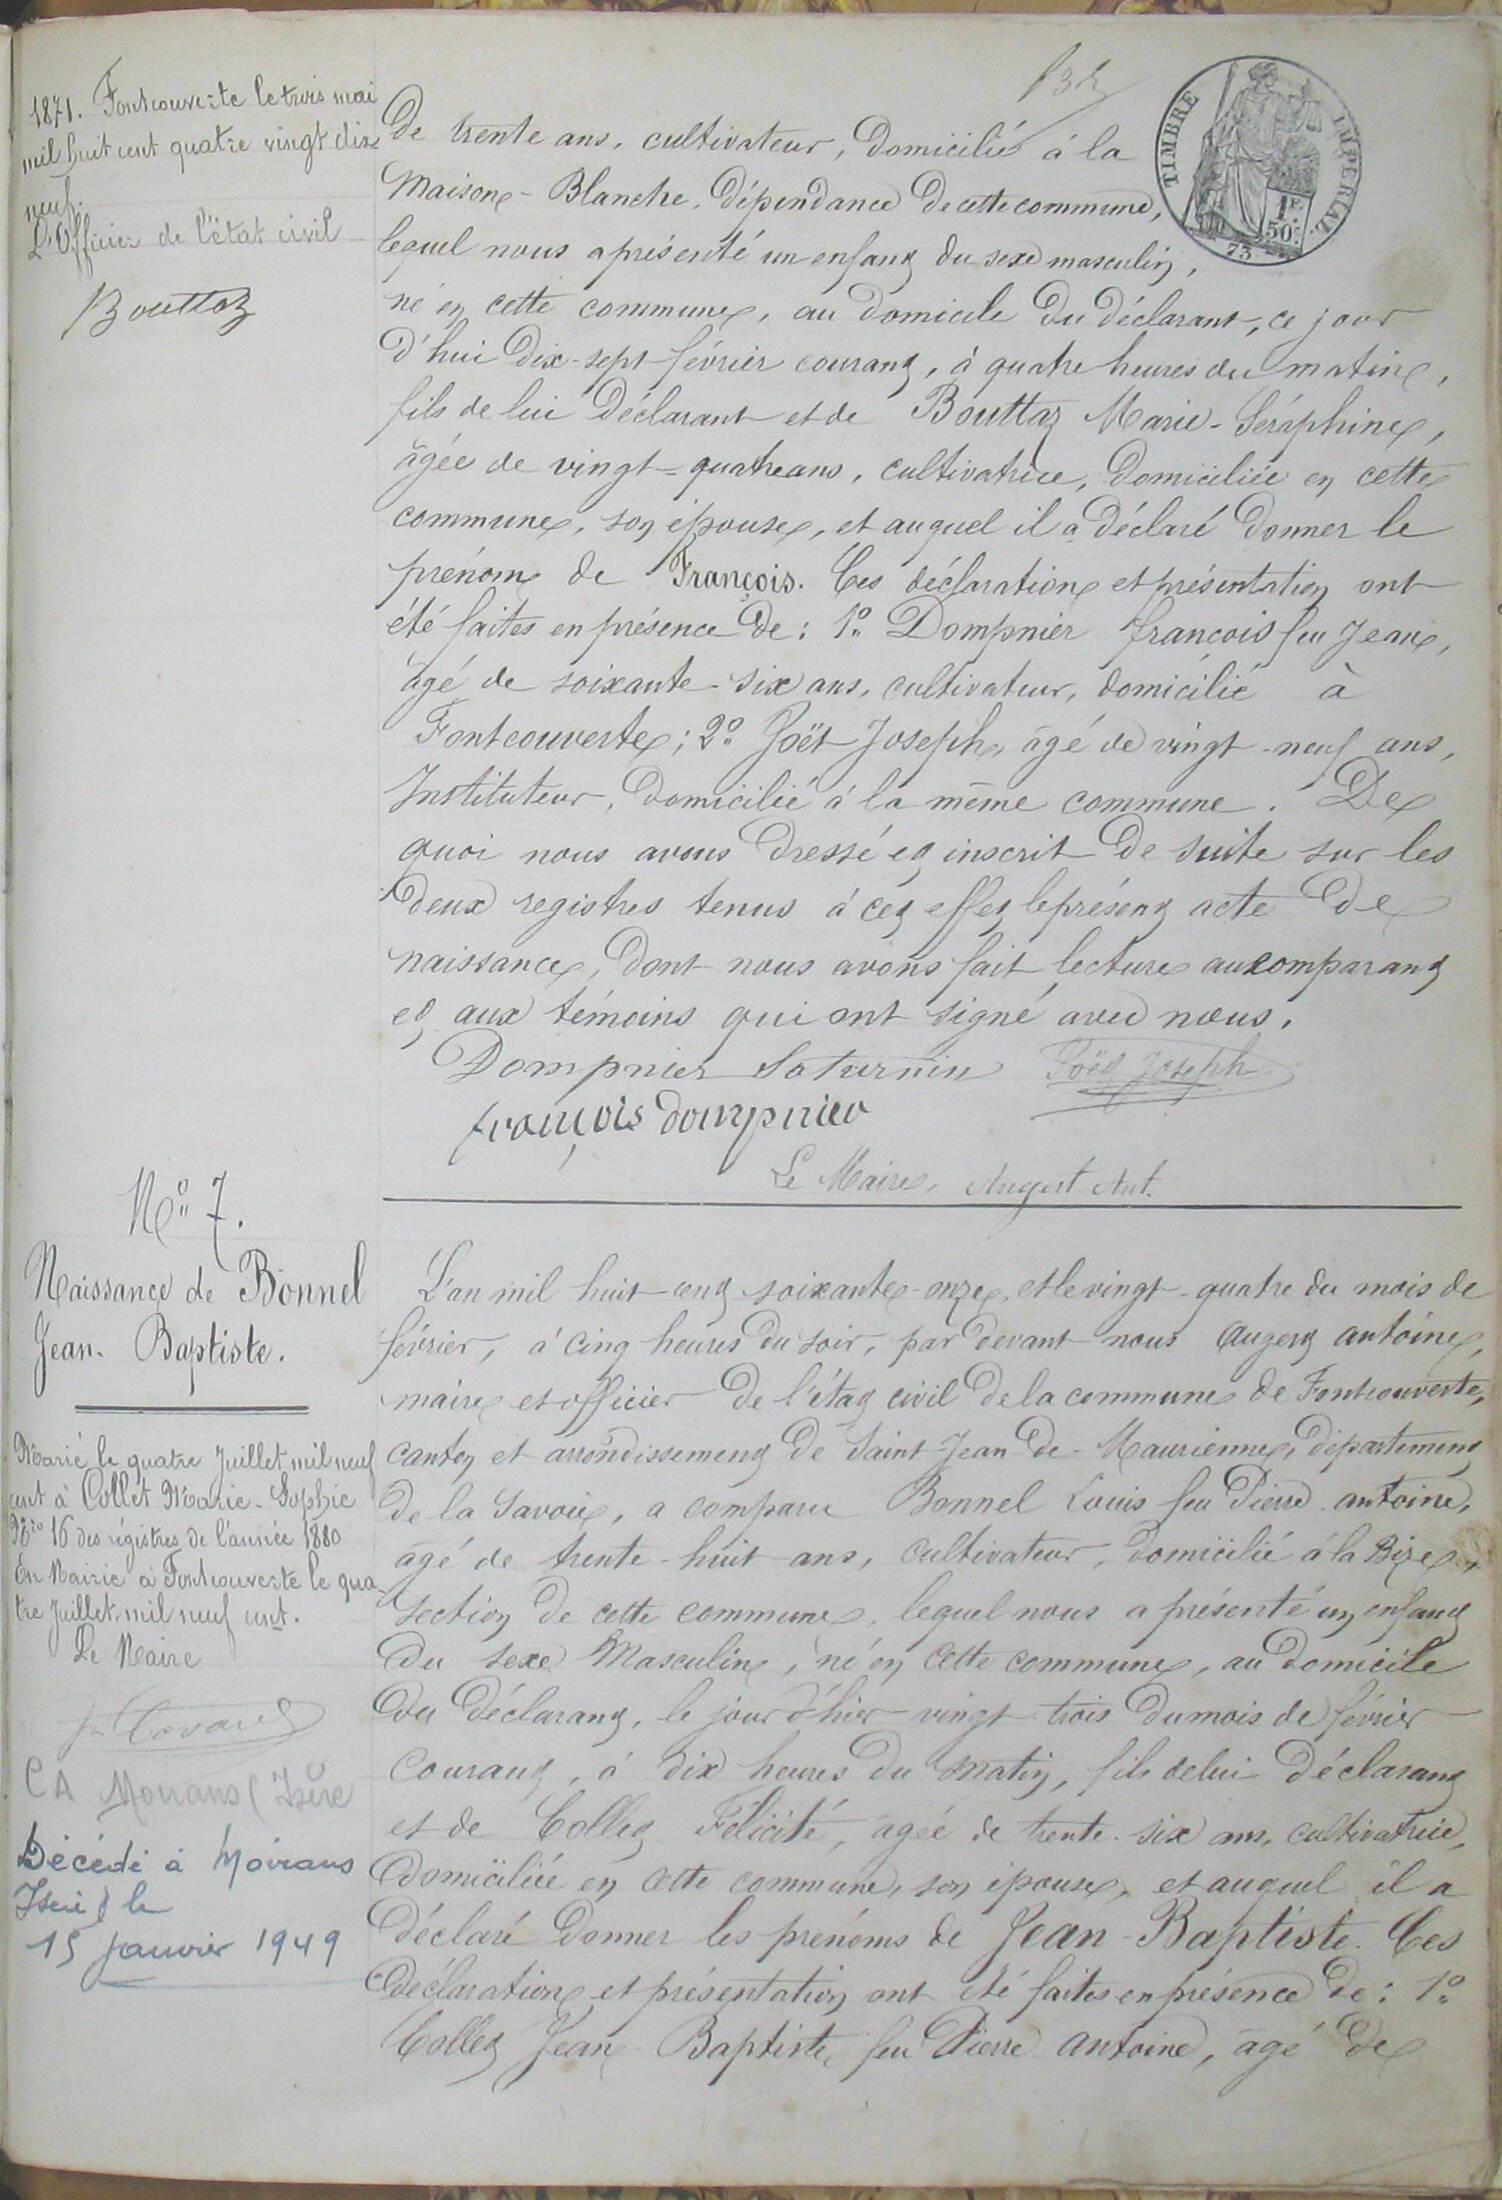 1871. Fontcouverte le trois mai
mil huit cent quatre vingt dix
neuf.
L'Officier de l'état civil
Bouttaz
TIMBRE IMPÉRIAL
1F
50c
73
de trente ans, cultivateur, domicilié à la
Maison-Blanche, dépendance de cette commune,
lequel nous a présenté un enfant du sexe masculin,
né en cette commune, au domicile du déclarant, ce jour
d'hui dix-sept février courant, à quatre heures du matin,
fils de lui déclarant et de Bouttaz Marie-Séraphine,
âgée de vingt-quatre ans, cultivatrice, domiciliée en cette
commune, son épouse, et auquel il a déclaré donner le
prénom de François. Ces déclaration et présentation ont
été faites en présence de: 1° Dompnier françois feu Jean,
âgé de soixante-six ans, cultivateur, domicilié à
Fontcouverte; 2° Joët Joseph, âgé de vingt-neuf ans,
Instituteur, domicilié à la même commune. De
quoi nous avons dressé et inscrit de suite sur les
deux registres tenus à cet effet le présent acte de
naissance, dont nous avons fait lecture au comparant
et aux témoins qui ont signé avec nous.
Dompnier Saturnin Joët Joseph
françois dompnier
Le Maire, Augert Ant.
N° 7.
Naissance de Bonnel
Jean-Baptiste.
Marié le quatre Juillet mil neuf
cent à Collet Marie-Sophie
N° 16 des régistres de l'année 1880
En Mairie à Fontcouverte le qua-
tre Juillet mil neuf cent.
Le Maire
CA Moirans (Isère
Décédé à Moirans
Isère) le
15 janvier 1949
L'an mil huit cent soixante-onze, et le vingt-quatre du mois de
février, à cinq heures du soir, par devant nous Augert antoine,
maire et officier de l'état civil de la commune de Fontcouverte,
canton et arrondissement de Saint-Jean-de-Maurienne, département
de la Savoie, a comparu Bonnel Louis feu Pierre antoine,
âgé de trente-huit ans, cultivateur, domicilié à la Bise,
section de cette commune, lequel nous a présenté un enfant
du sexe Masculin, né en cette commune, au domicile
du déclarant, le jour d'hier vingt-trois du mois de février
courant, à dix heures du matin, fils de lui déclarant
et de Collet Félicité, âgée de trente-six ans, cultivatrice,
domiciliée en cette commune, son épouse, et auquel il a
déclaré donner les prénoms de Jean-Baptiste. Ces
déclaration et présentation ont été faites en présence de: 1°
Collet Jean-Baptiste feu Pierre antoine, âgé de